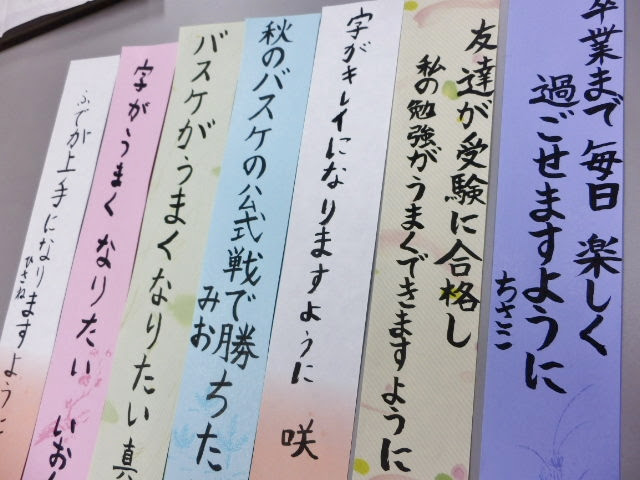 卒業まで毎日楽しく
過ごせますように
ちさこ
友達が受験に合格し
私の勉強がうまくできますように
字がキレイになりますように
咲
秋のバスケの公式戦で勝ちた
みお
バスケがうまくなりたい 真
字がうまくなりたい いお
ふでが上手になりますように
ひさね